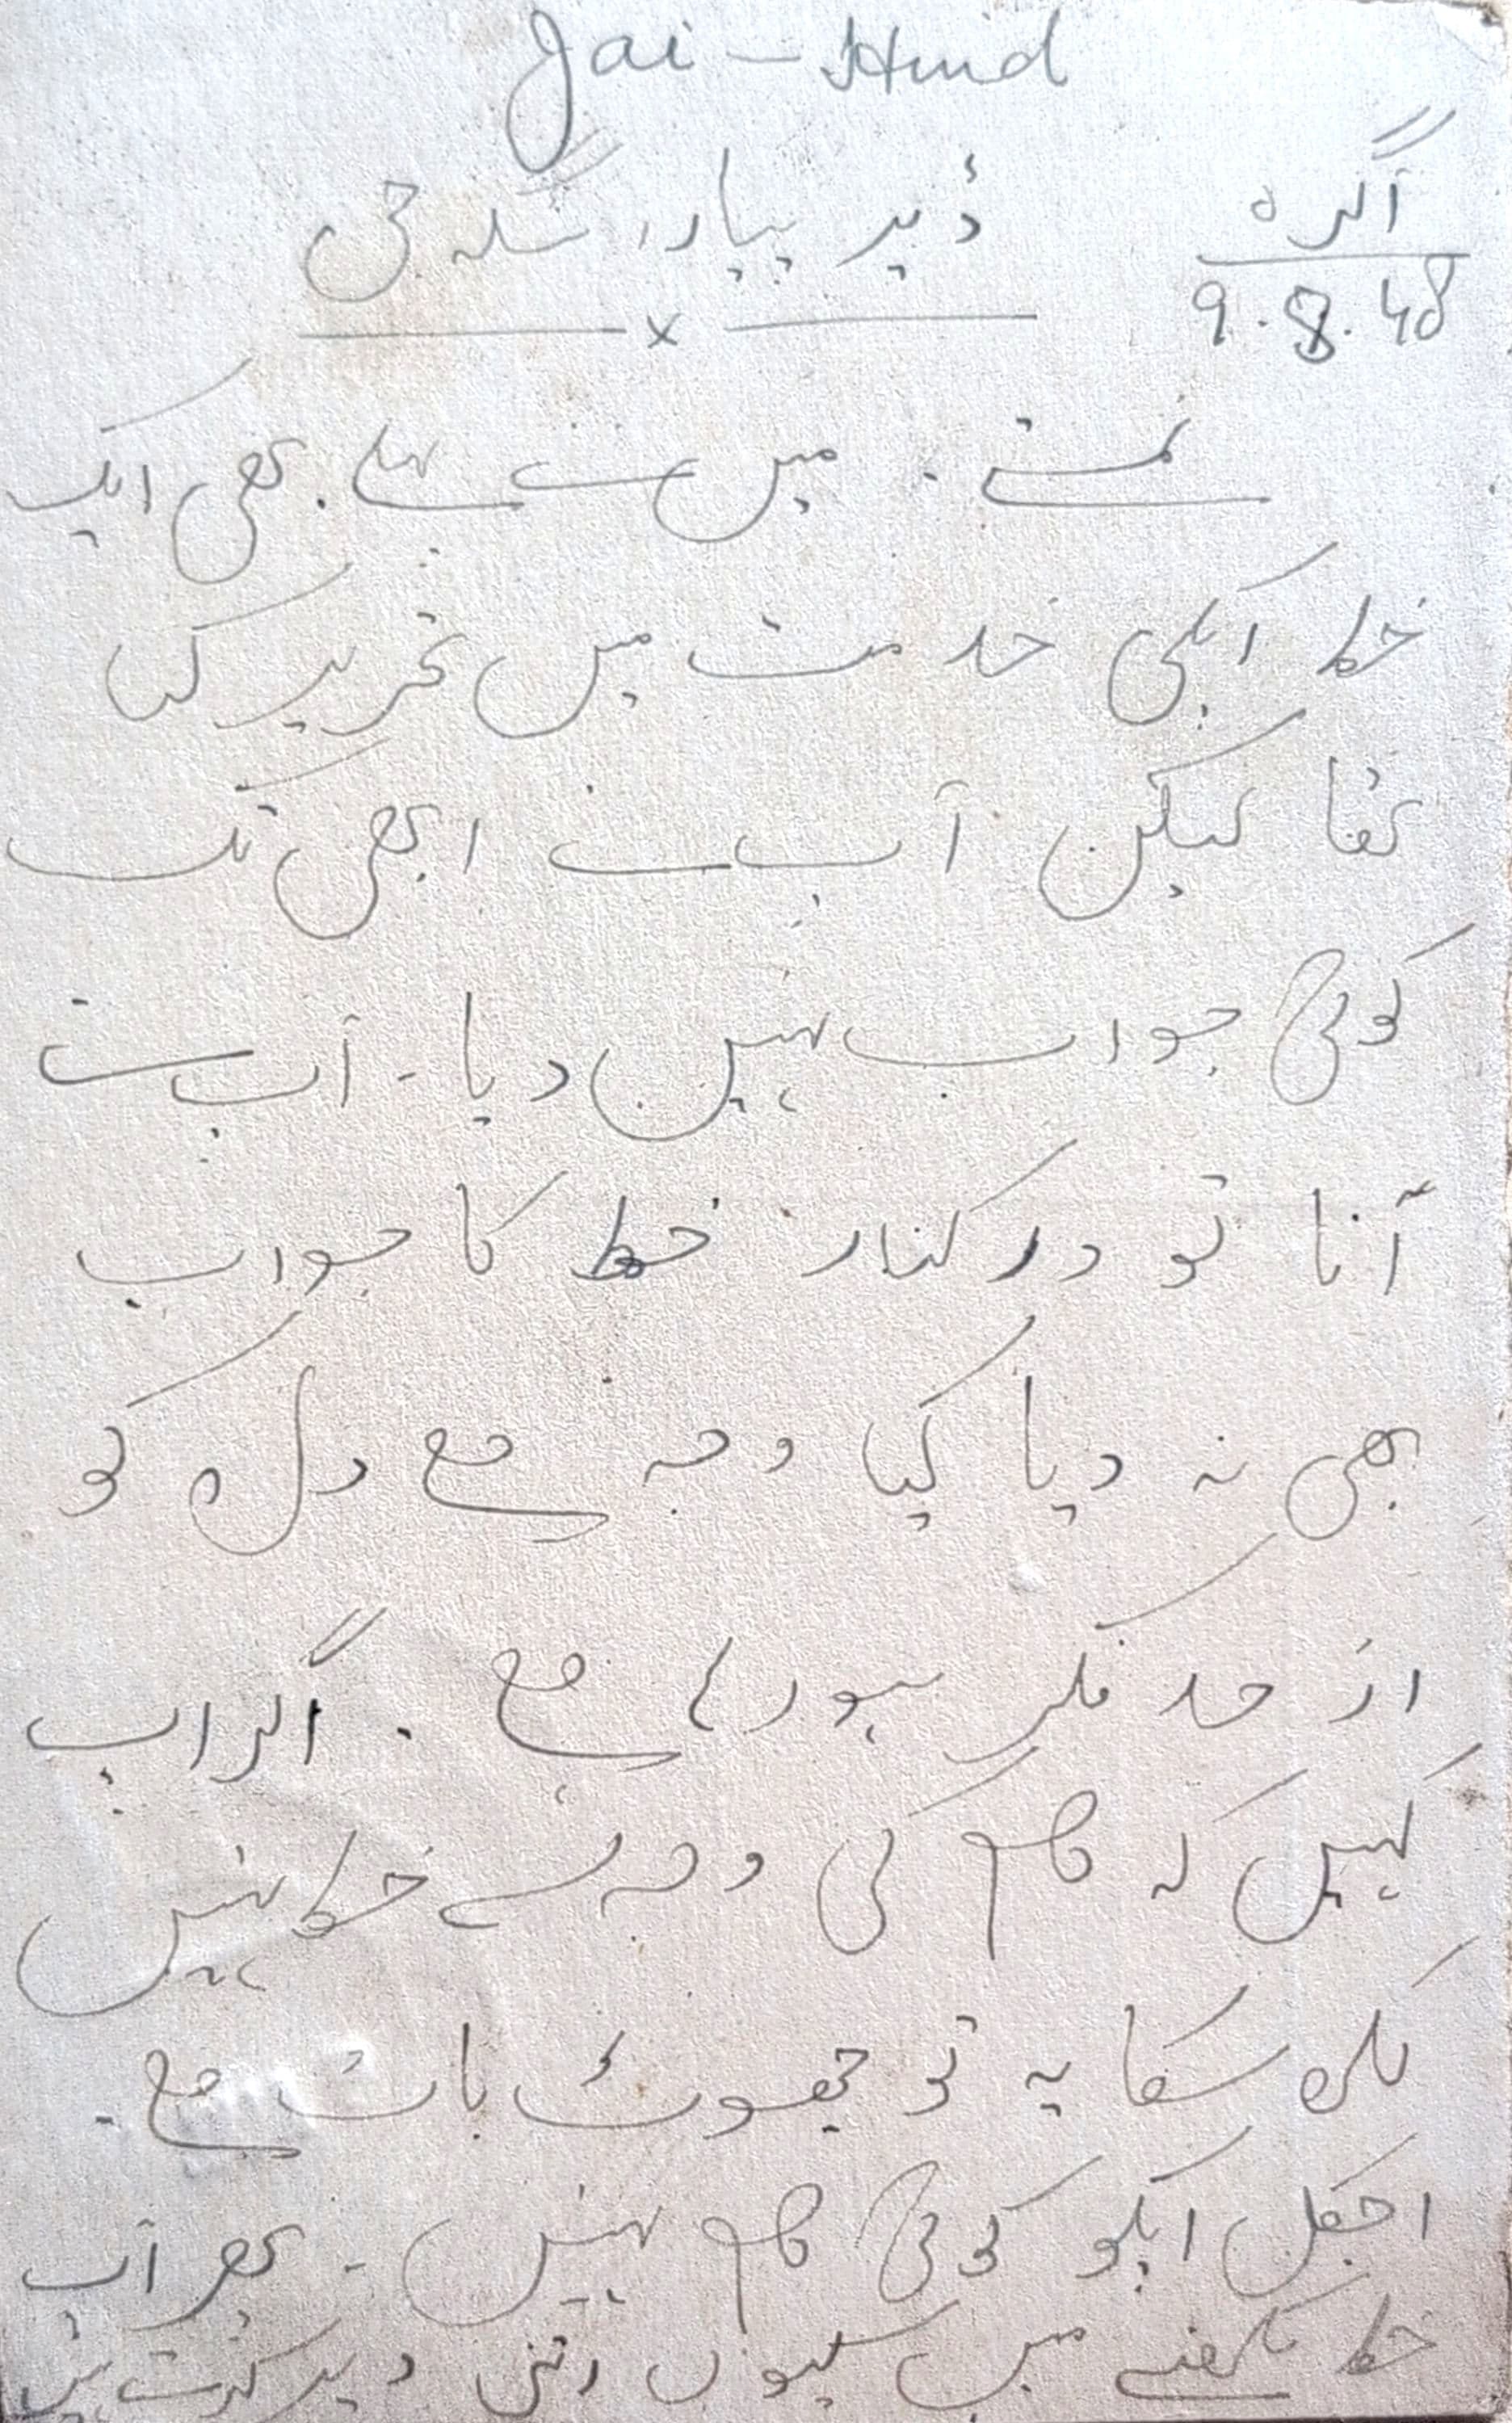 Jai - Hind
آگرہ
9.8.48
ڈیر پیارا سنگھ جی
x
نمستے ۔ میں نے پہلے بھی ایک
خط آپکی خدمت میں تحریر کیا
تھا لیکن آپ نے ابھی تک
کوئی جواب نہیں دیا ۔ آپ نے
آنا تو درکنار خط کا جواب
بھی نہ دیا کیا وجہ ہے دل کو
از حد فکر ہو رہا ہے ۔ اگر آپ
کہیں کہ کام کی وجہ سے خط نہیں
لکھ سکا یہ تو جھوٹ بات ہے ۔
اجکل اپکو کوئی کام نہیں ۔ پھر آپ
خط لکھنے میں کیوں اتنی دیر کرتے ہیں